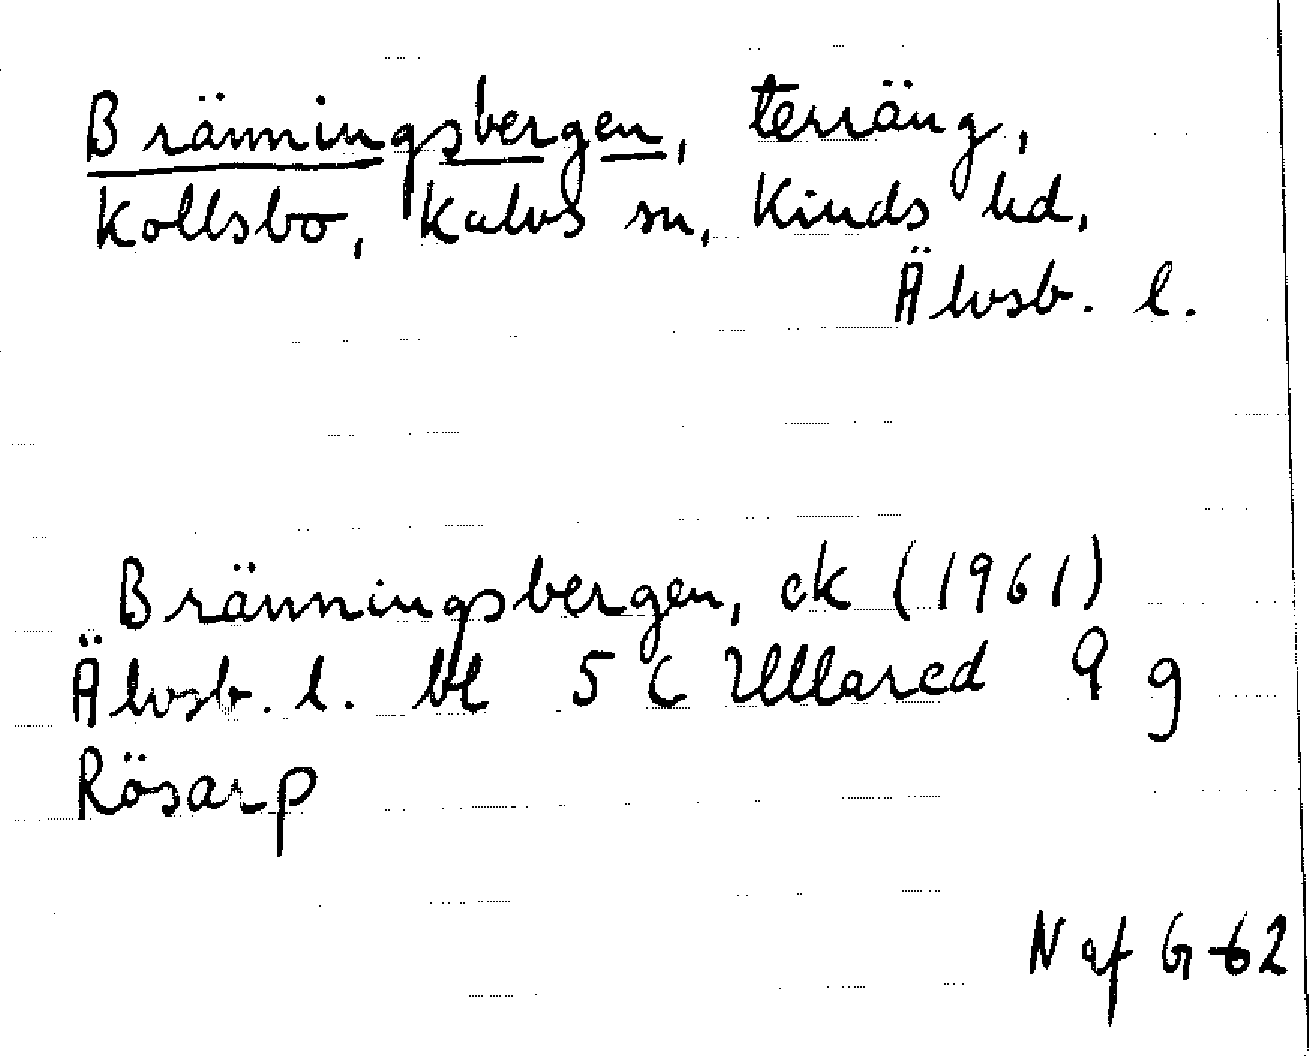 Bränningsbergen, terräng,
Kollsbo, Kalvs sn, Kinds hd,
Älvsb. l.
Bränningsbergen, ek (1961)
Älvsb. l. bl 5 C Ullared 9 g
Rösarp
N af G-62